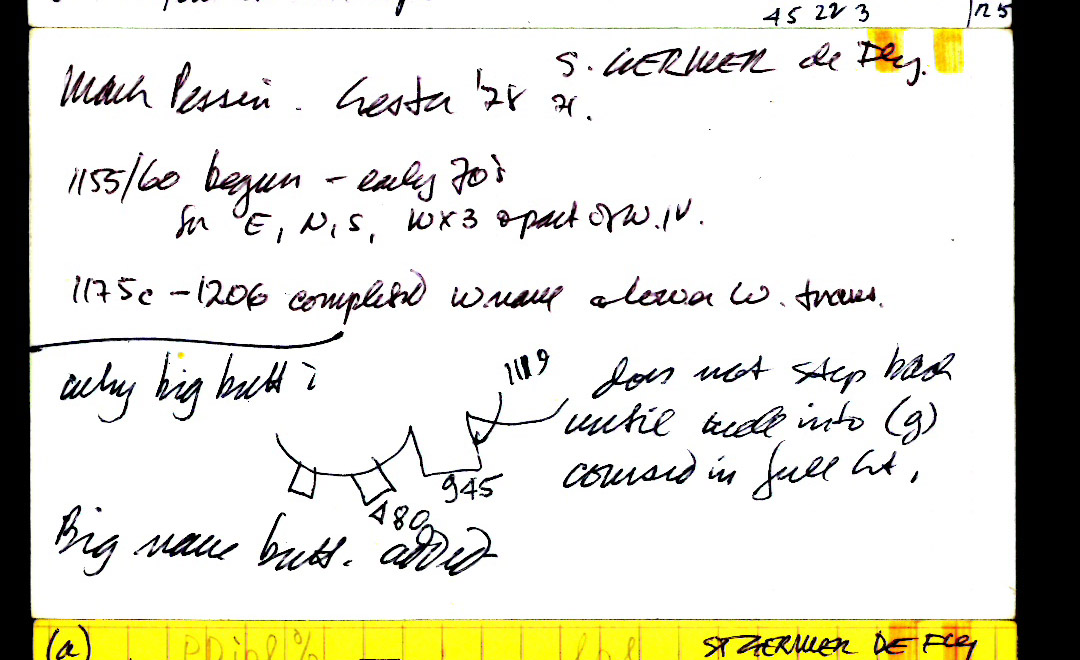 45 22 3
125
S. GERMER de Fly.
Mach Pessin. Gesta '78
1155/60 begun - early 70's
for E, N, S, W x 3 & part of W. IV.
1175c - 1206 completed W nave & lower W. trans.
why big butt?
1119
does not step back
until well into (g)
coursed in full ht.
945
480
Big nave butt. added
(a)
ST GERMER DE FLY